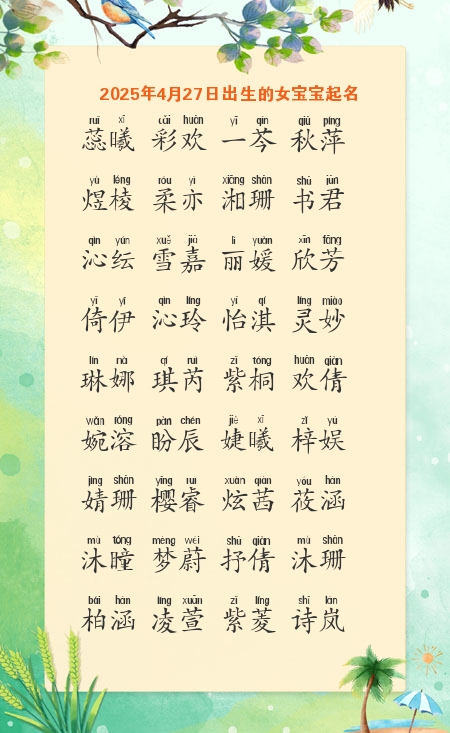 2025年4月27日出生的女宝宝起名
ruǐ xī cǎi huān yī qín qiū píng
蕊曦 彩欢 一芩 秋萍
yù léng róu yì xiāng shān shū jūn
煜棱 柔亦 湘珊 书君
qìn yún xuě jiā lì yuàn xīn fāng
沁纭 雪嘉 丽媛 欣芳
yǐ yī qìn líng yí qí líng miào
倚伊 沁玲 怡淇 灵妙
lín nà qí ruì zǐ tóng huān qiàn
琳娜 琪芮 紫桐 欢倩
wǎn róng pàn chén jié xī zǐ yú
婉溶 盼辰 婕曦 梓娱
jìng shān yīng ruì xuàn qiàn yóu hán
婧珊 樱睿 炫茜 莜涵
mù tóng mèng wèi shū qiàn mù shān
沐瞳 梦蔚 抒倩 沐珊
bǎi hán líng xuān zǐ líng shī lán
柏涵 凌萱 紫菱 诗岚